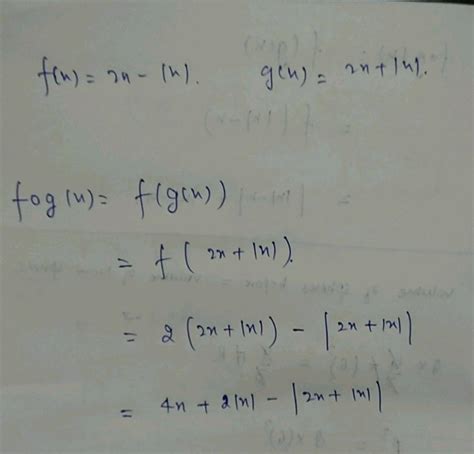 f(x) = 2x - |x|. g(x) = 2x + |x|.
fog(x) = f(g(x))
= f(2x + |x|).
= 2(2x + |x|) - |2x + |x||
= 4x + 2|x| - |2x + |x||